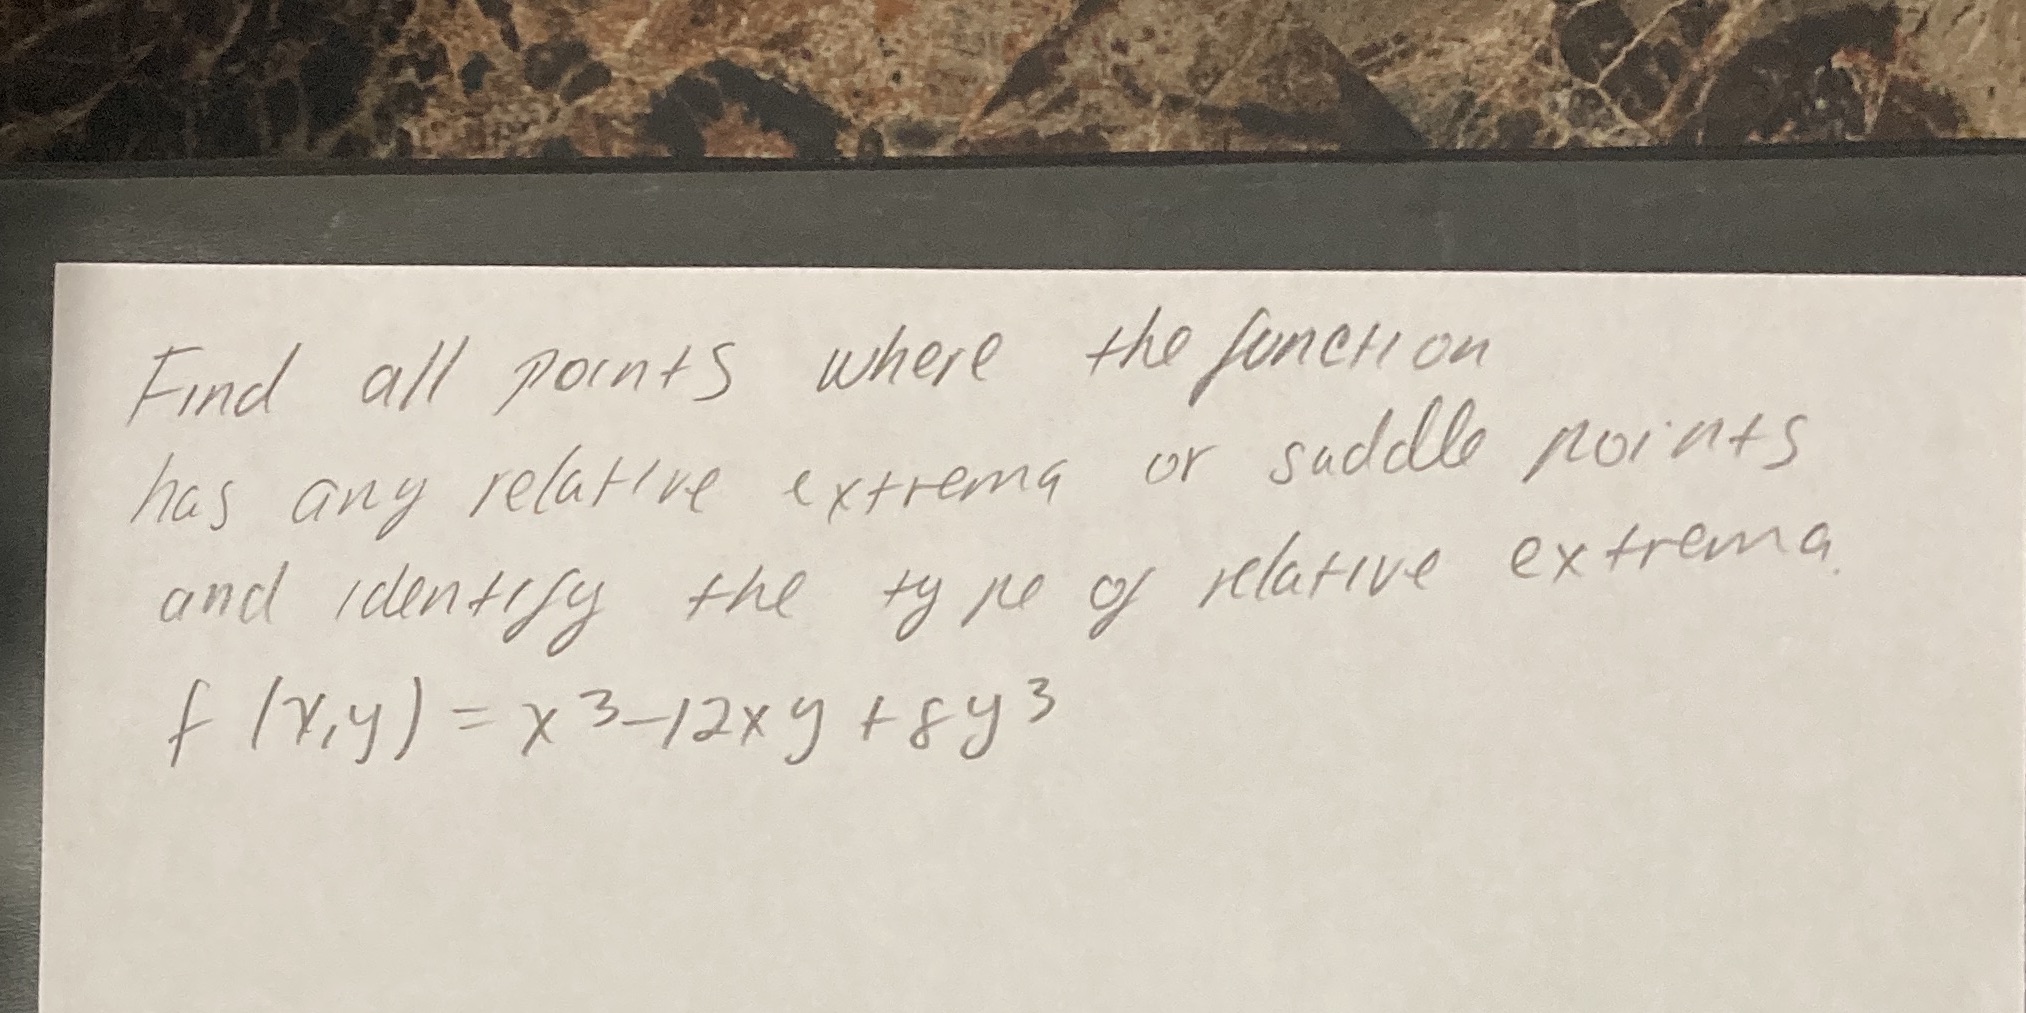 Find all points where the function
has any relative extrema or saddle points
and identify the type of relative extrema.
f(x,y) = x³-12xy+8y³